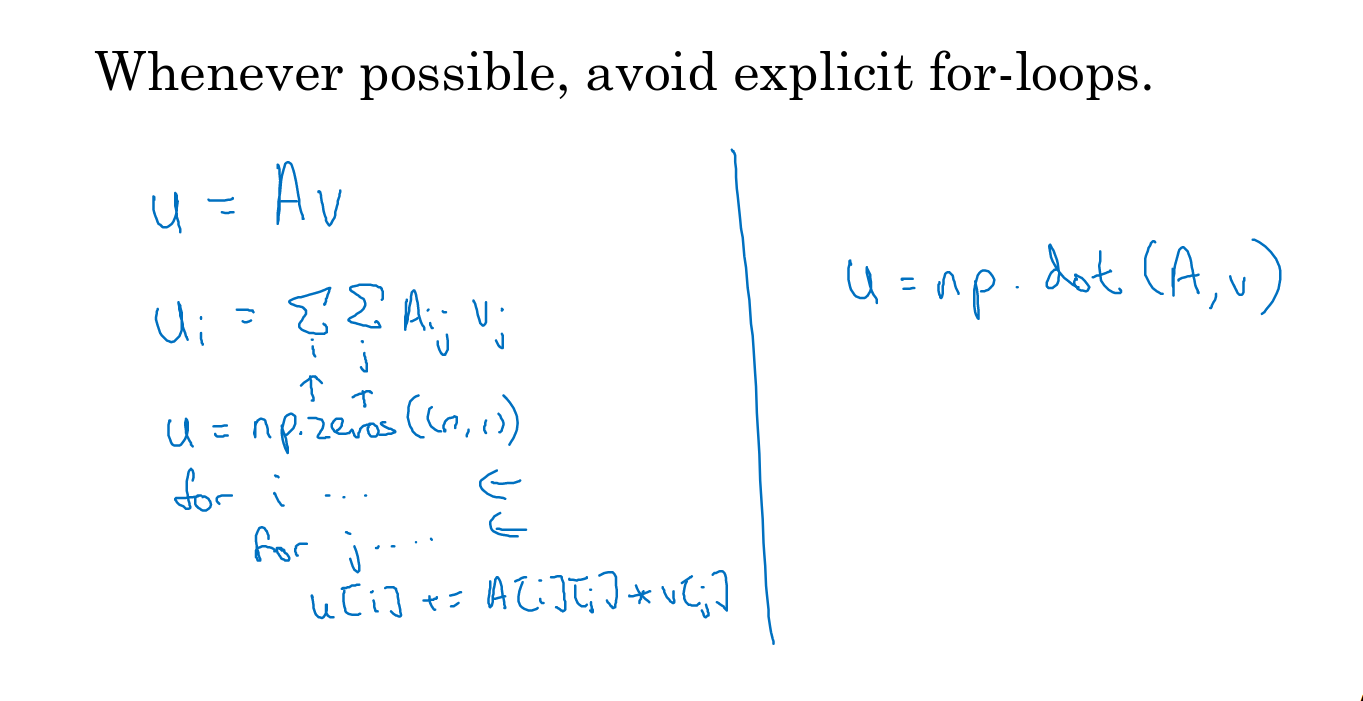 Whenever possible, avoid explicit for-loops.
u = Av
uᵢ = Σᵢ Σⱼ Aᵢⱼ vⱼ
↑ ↑
u = np.zeros((n,1))
for i ... ←
for j .... ←
u[i] += A[i][j] * v[j]
u = np.dot(A,v)